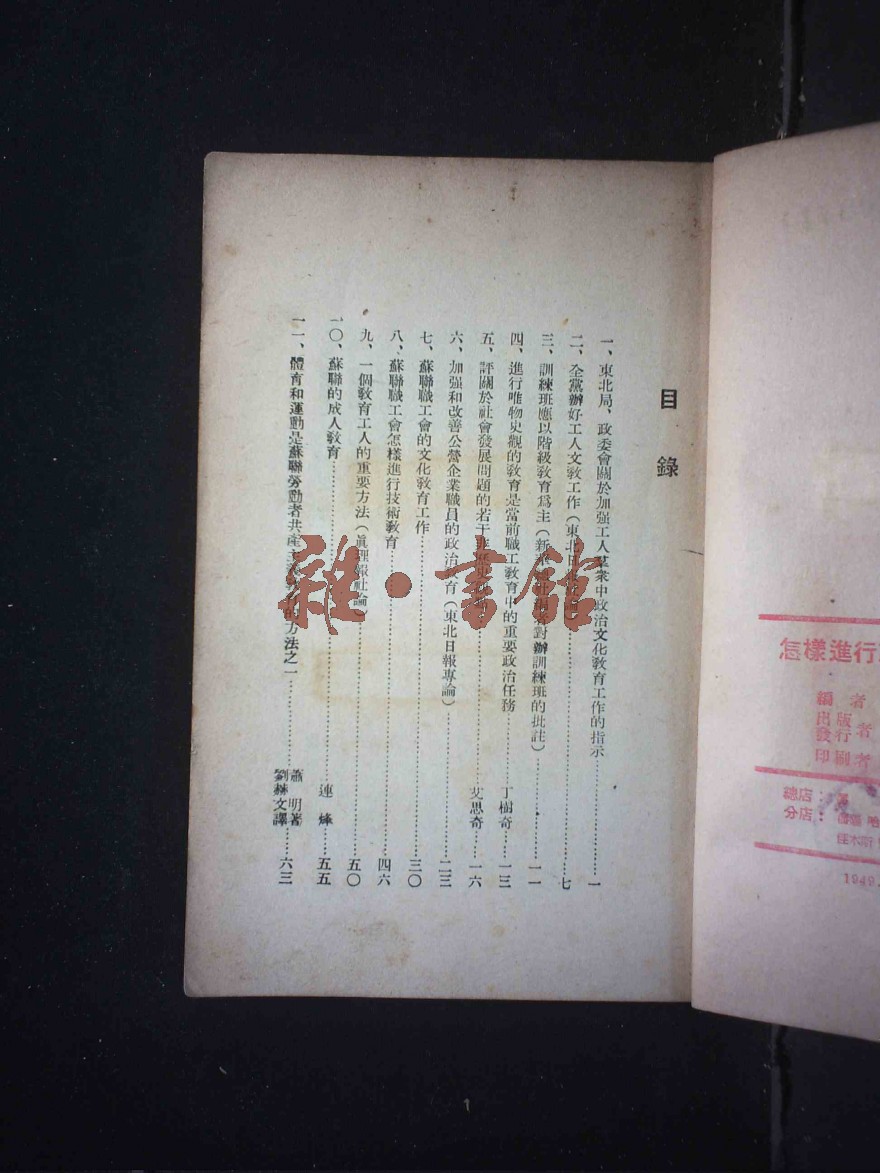 目錄
一、東北局、政委會關於加强工人羣衆中政治文化教育工作的指示……一
二、全黨辦好工人文教工作(東北日報社論)……七
三、訓練班應以階級教育爲主(新華 對辦訓練班的批註)……一一
四、進行唯物史觀的教育是當前職工教育中的重要政治任務……丁樹奇……一三
五、評關於社會發展問題的若干非歷史……艾思奇……一六
六、加强和改善公營企業職員的政治教育(東北日報專論)……二三
七、蘇聯職工會的文化教育工作……三〇
八、蘇聯職工會怎樣進行技術教育……四六
九、一個教育工人的重要方法(眞理報社論)……五〇
一〇、蘇聯的成人教育……連烽……五五
一一、體育和運動是蘇聯勞動者共產主義教育的方法之一……蕭明著
劉赫文譯……六三
怎樣進行
編者
出版者
發行
印刷者
總店:
分店: 哈
佳木斯
1949.
雜·書館